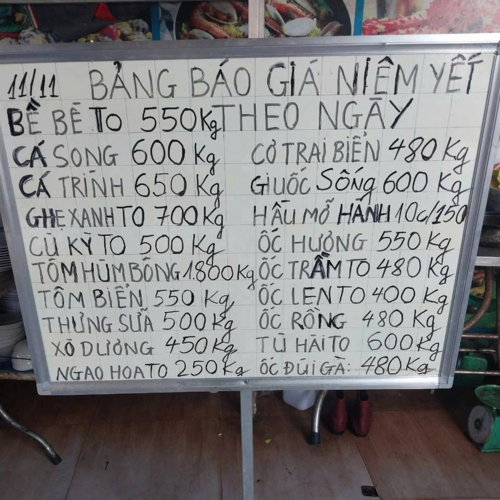 11/11 BẢNG BÁO GIÁ NIÊM YẾT
THEO NGÀY
BỀ BỀ TO 550Kg
CÁ SONG 600 Kg
CÁ TRÌNH 650 Kg
GHẸ XANH TO 700Kg
CÙ KỲ TO 500 Kg
TÔM HÙM BÔNG 1.800Kg
TÔM BIỂN 550 Kg
THƯNG SỮA 500Kg
XÔ DƯƠNG 450Kg
NGAO HOA TO 250 Kg
CƠ TRAI BIỂN 480 Kg
GIUỐC SỐNG 600 Kg
HÀU MỠ HÀNH 10C/150
ỐC HƯƠNG 550 Kg
ỐC TRẦM TO 480 Kg
ỐC LEN TO 400 Kg
ỐC RỒNG 480 Kg
TU HÀI TO 600Kg
ỐC ĐÙI GÀ: 480 Kg